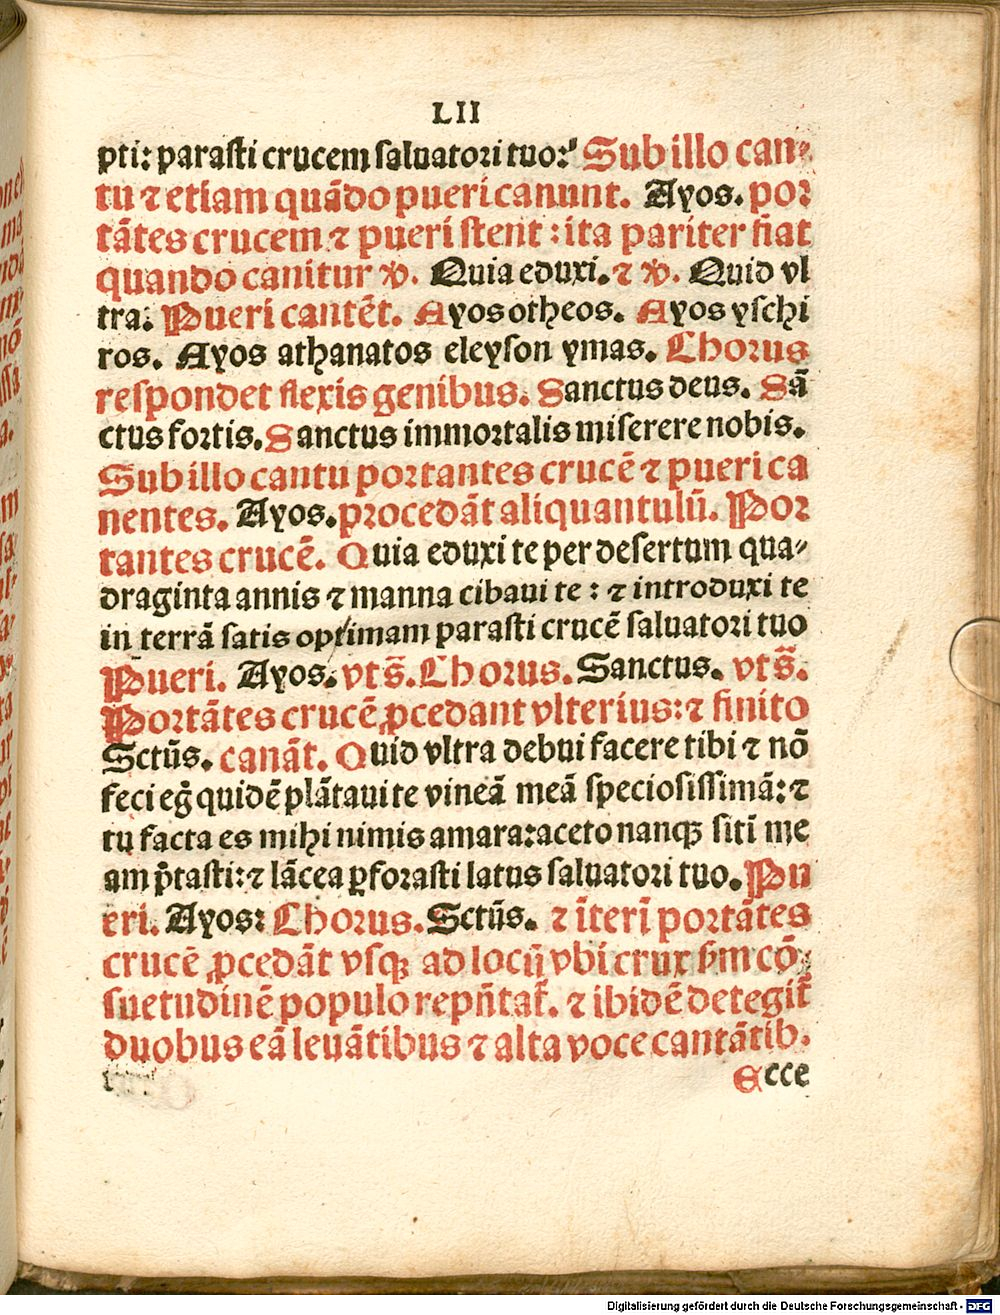 LII
pti: parasti crucem saluatori tuo: Sub illo can-
tu ⁊ etiam quãdo pueri canunt. Ayos. por
tãtes crucem ⁊ pueri stent : ita pariter fiat
quando canitur ℣. Quia eduxi. ⁊ ℣. Quid vl
tra. Pueri cantẽt. Ayos otheos. Ayos yschi
ros. Ayos athanatos eleyson ymas. Chorus
respondet flexis genibus. Sanctus deus. Sã
ctus fortis. Sanctus immortalis miserere nobis.
Sub illo cantu portantes crucẽ ⁊ pueri ca
nentes. Ayos. procedãt aliquantulũ. Por
tantes crucẽ. Quia eduxi te per desertum qua-
draginta annis ⁊ manna cibaui te : ⁊ introduxi te
in terrã satis optimam parasti crucẽ saluatori tuo
Pueri. Ayos. vts̃. Chorus. Sanctus. vts̃.
Portãtes crucẽ ꝓcedant vlterius: ⁊ finito
Sctũs. canãt. Quid vltra debui facere tibi ⁊ nõ
feci eg̃ quidẽ plãtaui te vineã meã speciosissimã: ⁊
tu facta es mihi nimis amara: aceto nanqꝫ sitĩ me
am p̃tasti: ⁊ lãcea ꝑforasti latus saluatori tuo. Pu
eri. Ayos: Chorus. Sctũs. ⁊ ĩterĩ portãtes
crucẽ ꝓcedãt vsqꝫ ad locũ vbi crux s̃m cõ-
suetudinẽ populo repñtat̃. ⁊ ibidẽ detegit̃
duobus eã leuãtibus ⁊ alta voce cantãtib.
Ecce
Digitalisierung gefördert durch die Deutsche Forschungsgemeinschaft - DFG